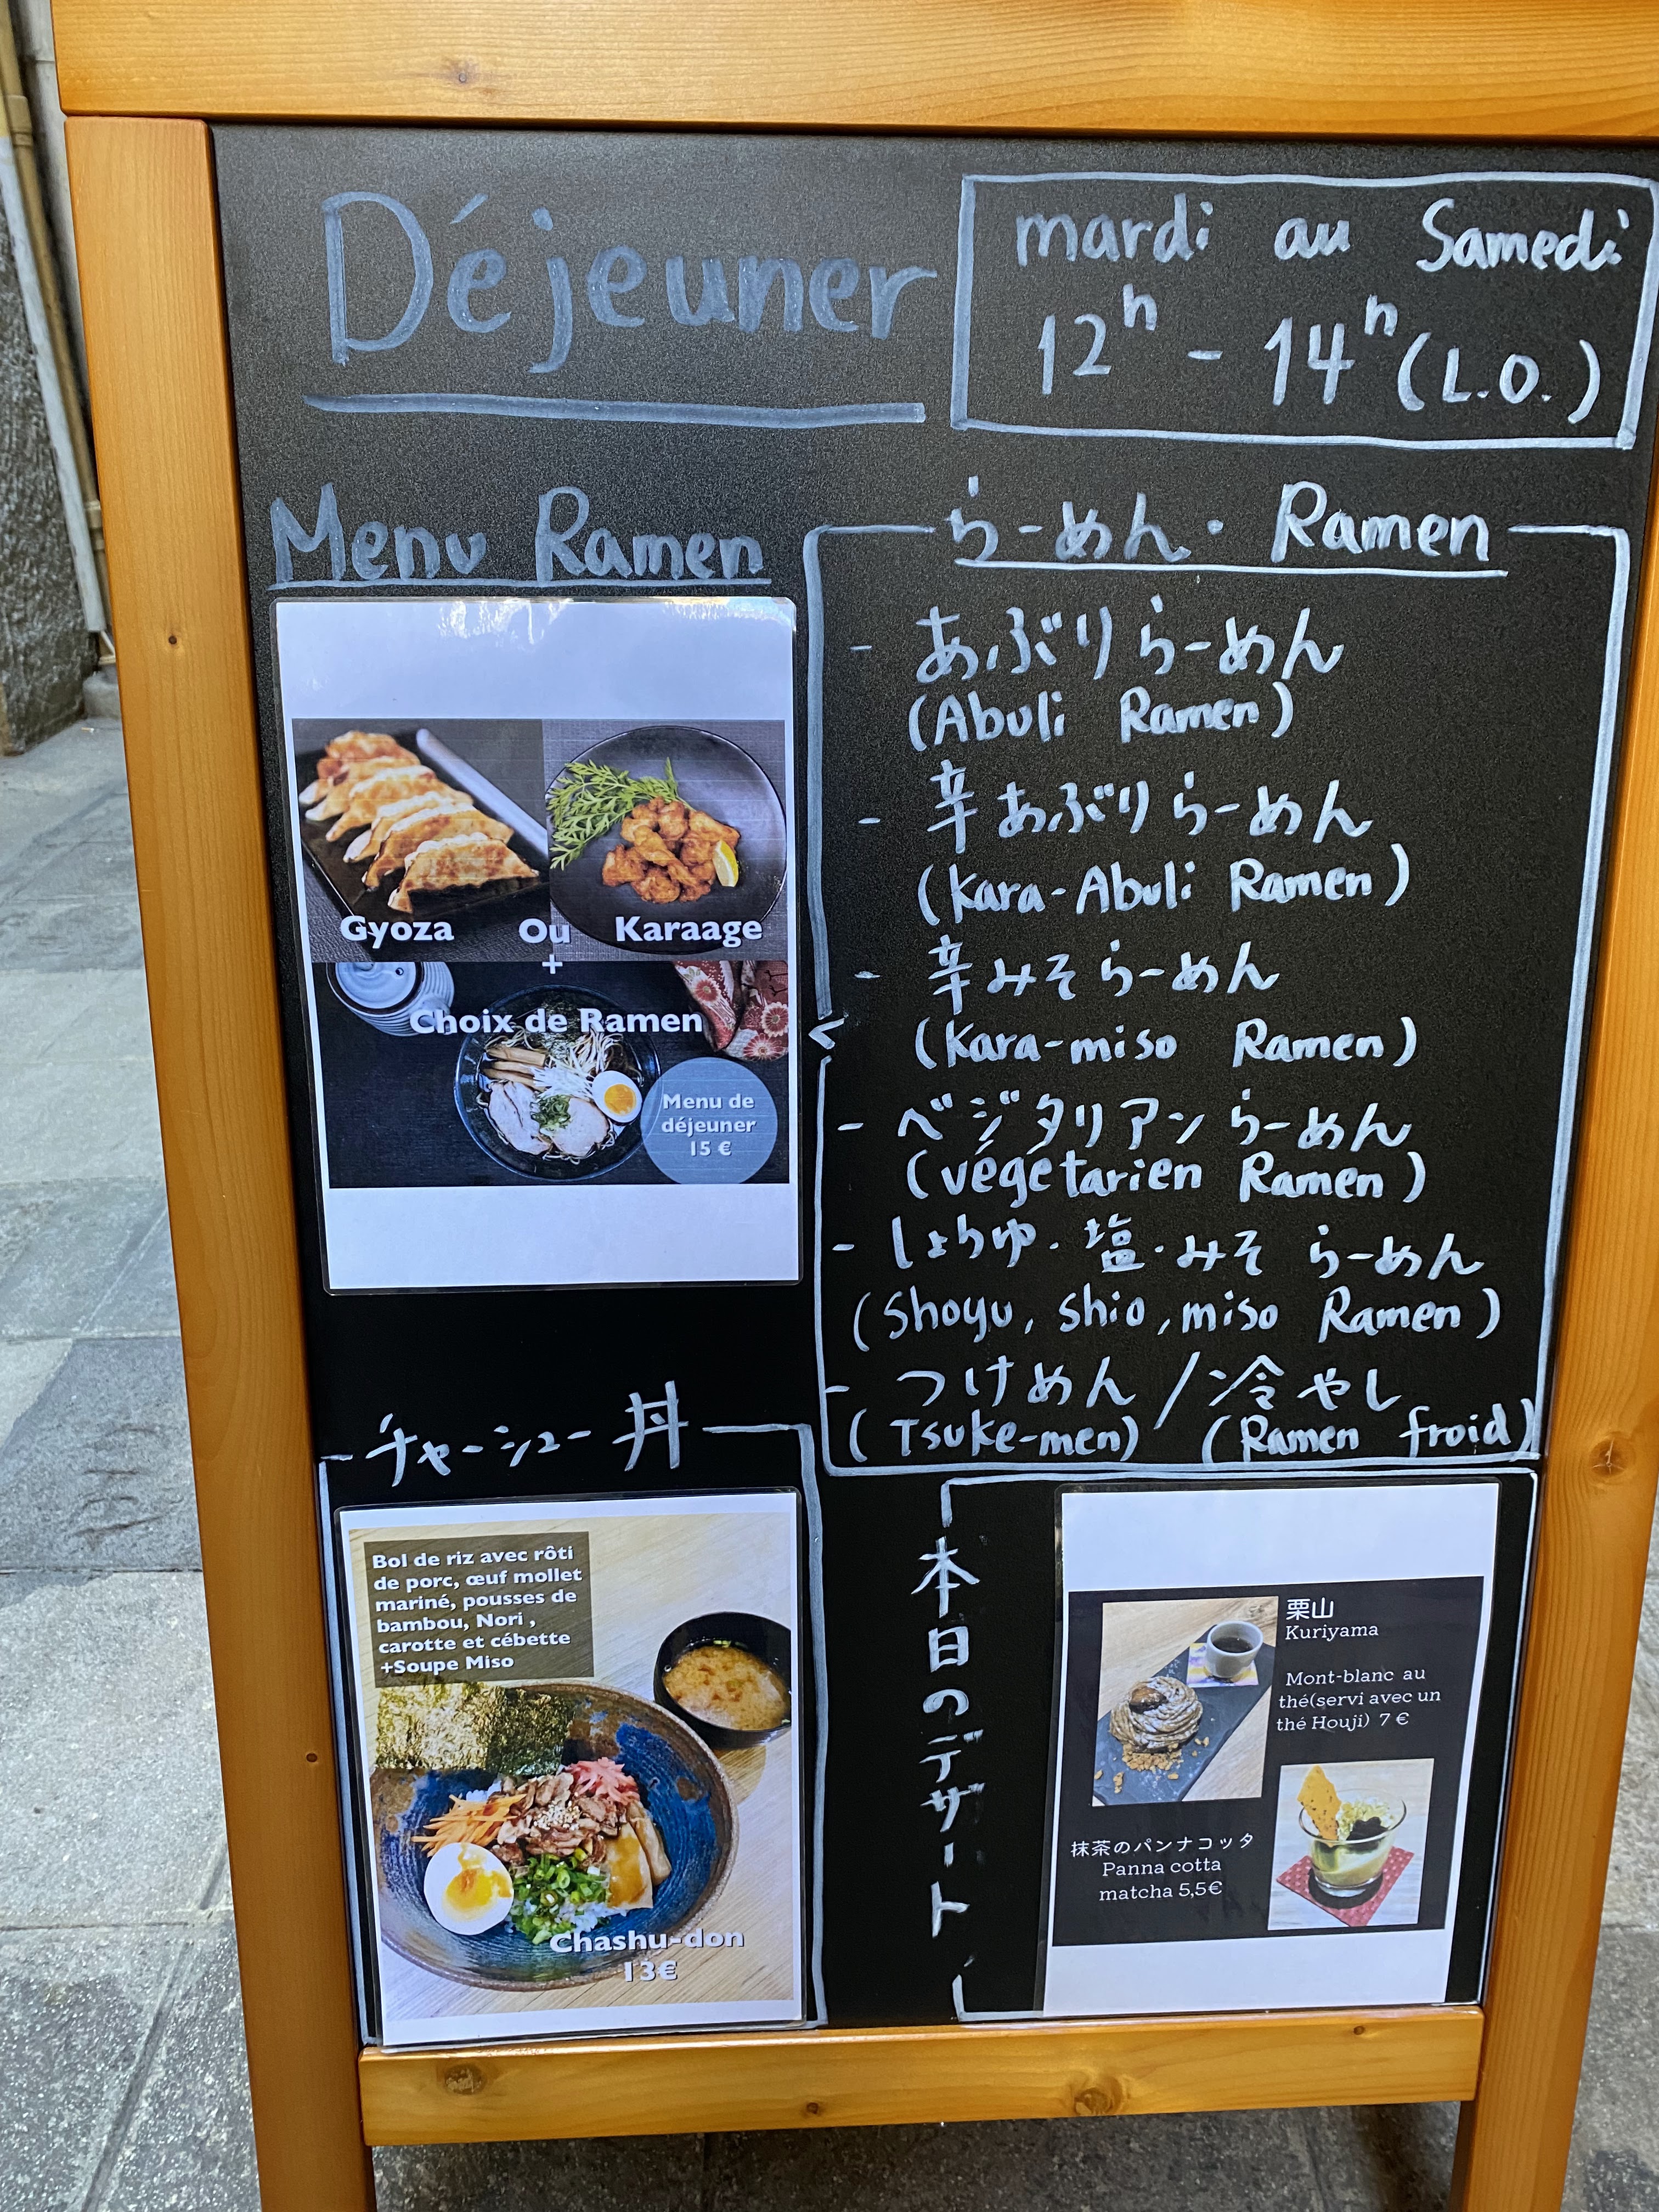 Déjeuner
mardi au Samedi
12h - 14h (L.O.)
Menu Ramen
Gyoza Ou Karaage
+
Choix de Ramen
Menu de
déjeuner
15 €
らーめん・Ramen
- あぶりらーめん
(Abuli Ramen)
- 辛あぶりらーめん
(Kara-Abuli Ramen)
- 辛みそらーめん
(Kara-miso Ramen)
- ベジタリアンらーめん
(végétarien Ramen)
- しょうゆ・塩・みそ らーめん
(Shoyu, Shio, miso Ramen)
- つけめん / 冷やし
(Tsuke-men) / (Ramen froid)
チャーシュー丼
Bol de riz avec rôti
de porc, œuf mollet
mariné, pousses de
bambou, Nori ,
carotte et cébette
+Soupe Miso
Chashu-don
13€
本日のデザート
栗山
Kuriyama
Mont-blanc au
thé(servi avec un
thé Houji) 7 €
抹茶のパンナコッタ
Panna cotta
matcha 5,5€